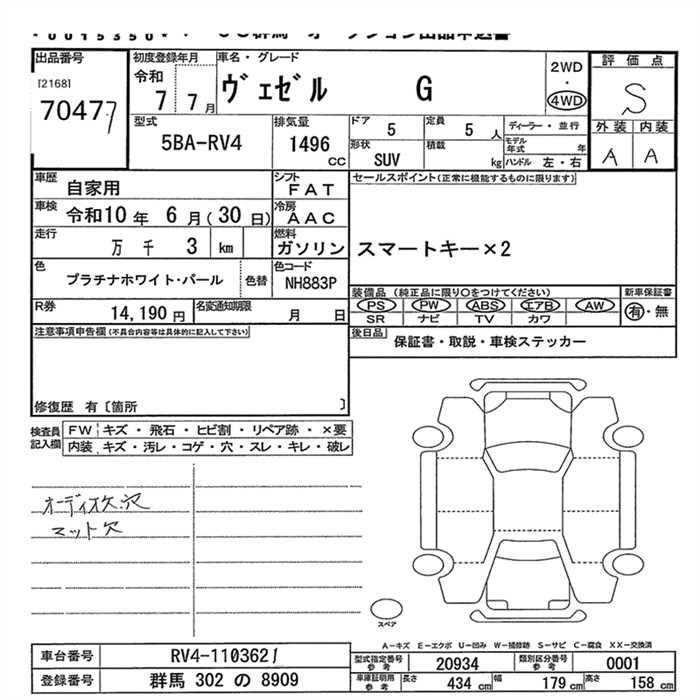 出品番号
[2168]
70477
初度登録年月
令和
7 7月
車名・グレード
ヴェゼル G
2WD
・
4WD
評価点
S
外装 内装
A A
型式
5BA-RV4
排気量
1496
cc
ドア
5
定員
5 人
形状
SUV
積載
kg
ディーラー・並行
モデル年式 年
ハンドル 左・右
車歴
自家用
シフト
FAT
セールスポイント(正常に機能するものに限ります)
車検
令和10年 6月(30日)
冷房
AAC
走行
万 千 3 km
燃料
ガソリン
スマートキー×2
色
プラチナホワイト・パール
色替
色コード
NH883P
装備品 (純正品に限り○をつけてください)
PS PW ABS エアB AW
SR ナビ TV カワ
新車保証書
有・無
R券
14,190円
名変通知期限
月 日
注意事項申告欄(不具合内容等は具体的に記入して下さい)
後日品
保証書・取説・車検ステッカー
修復歴 有〔箇所 〕
検査員記入欄
FW キズ・飛石・ヒビ割・リペア跡・×要
内装 キズ・汚レ・コゲ・穴・スレ・キレ・破レ
オーディオ欠.穴
マット欠
スペア
A-キズ E-エクボ U-凹み W-補修跡 S-サビ C-腐食 XX-交換済
車台番号
RV4-1103621
型式指定番号
参考
20934
類別区分番号
参考
0001
登録番号
群馬 302 の 8909
車庫証明用
参考
長さ 434 cm 幅 179 cm 高さ 158 cm